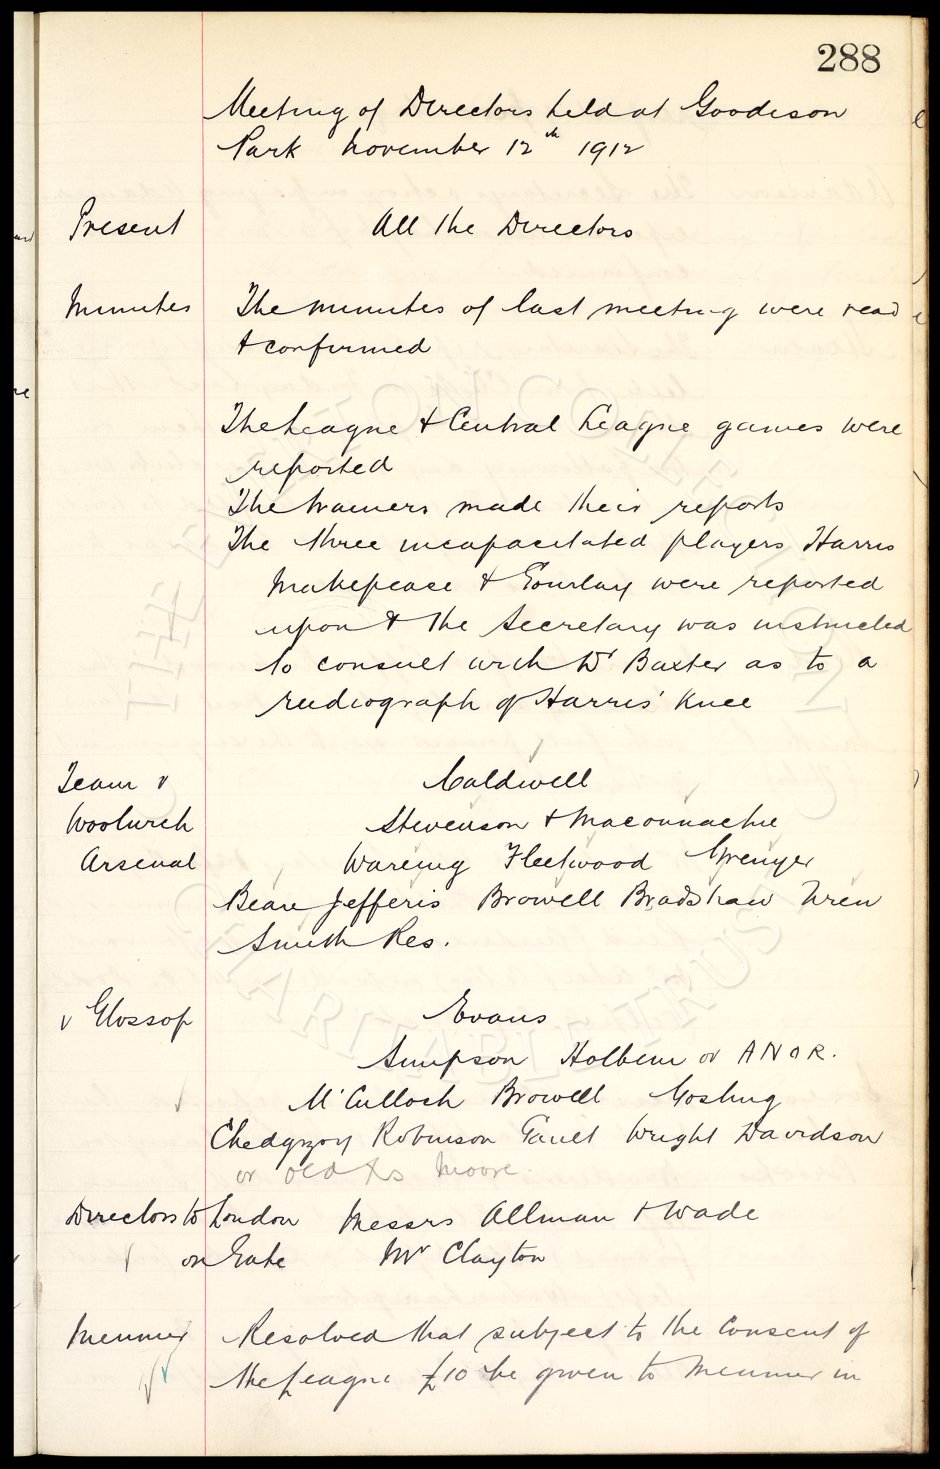 288
Meeting of Directors held at Goodison
Park November 12th 1912
Present All the Directors
Minutes The minutes of last meeting were read
& confirmed
The League & Central League games were
reported
The trainers made their reports
The three incapacitated players Harris
Makepeace & Gourlay were reported
upon & the Secretary was instructed
to consult with Dr Baxter as to a
radiograph of Harris' knee
Team v Caldwell
Woolwich Stevenson & Maconnachie
Arsenal Wareing Fleetwood Grenyer
Beare Jefferis Browell Bradshaw Uren
Smith Res.
v Glossop Evans
Simpson Holbem or A N O R.
McCulloch Browell Gosling
Chedgzoy Robinson Gault Wright Davidson
or old Xs Moore.
Directors to London Messrs Allman & Wade
on Gate Mr Clayton
Meunier Resolved that subject to the consent of
the League £10 be given to Meunier in